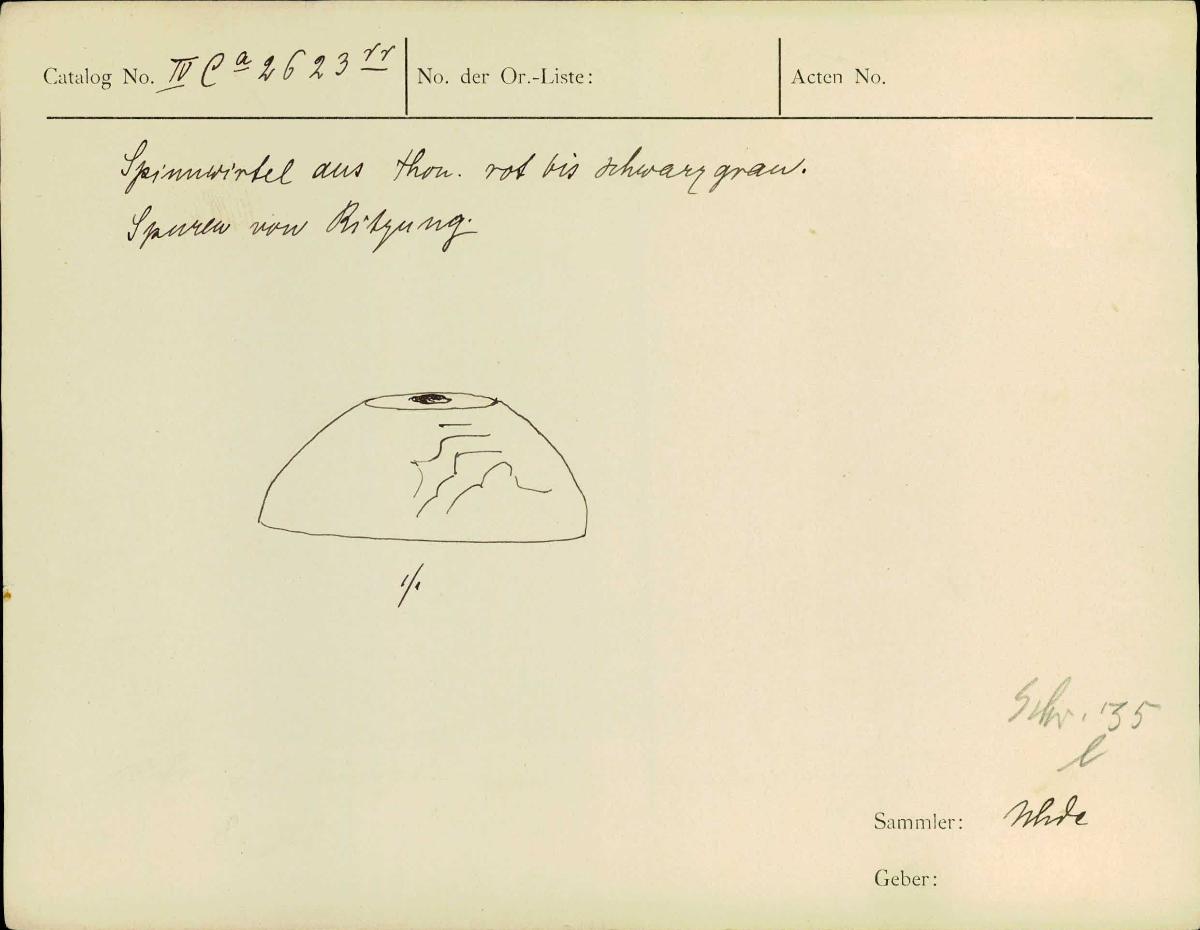 Catalog No. IV Ca 2623 rr No. der Or.-Liste: Acten No.
Spinnwirtel aus Thon. rot bis schwarzgrau.
Spuren von Ritzung.
1/1
Schr. 35
l
Sammler: Uhde
Geber: